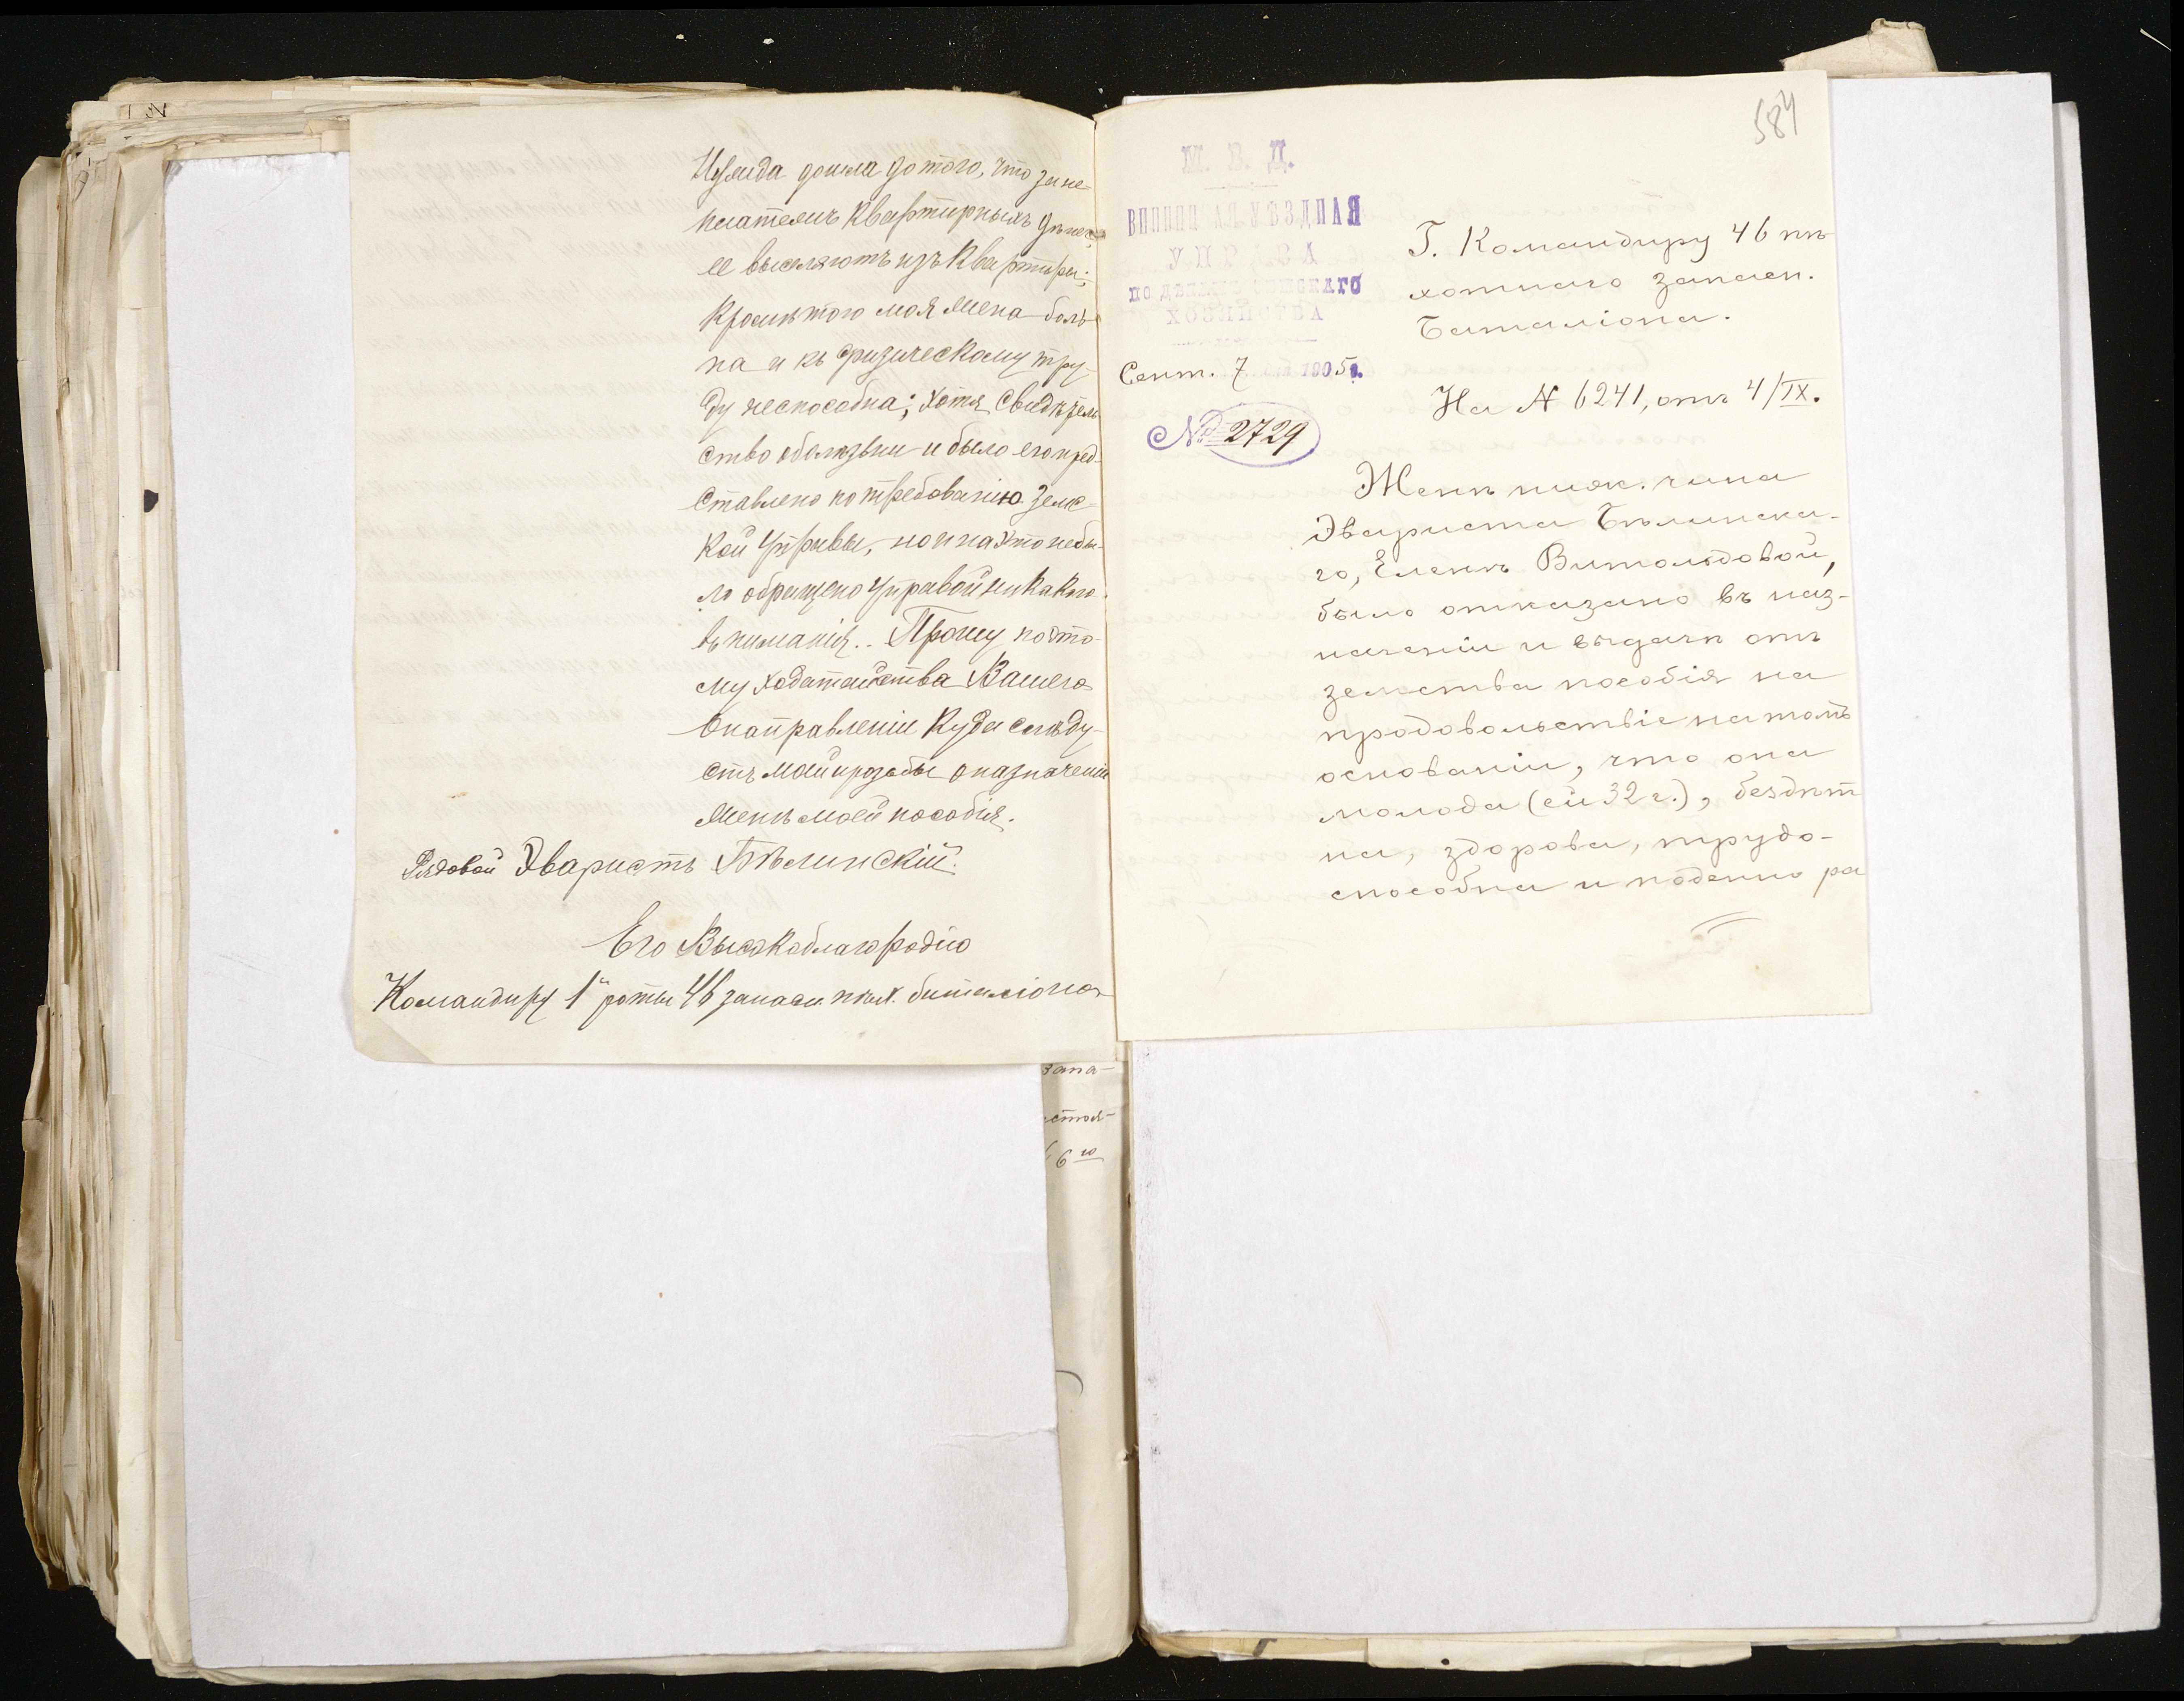 Нужда дошла до того, что за не
платежъ квартирныхъ денегъ
ее выселяютъ изъ квартиры;
кромѣ того моя жена боль-
на и къ физическому тру-
ду неспособна; хотя свидѣтель
ство о болѣзни и было ею пред-
ставлено по требованію Земс-
кой Управы, но и на это не бы-
ло обращено Управой никакого
вниманія.. Прошу поэто-
му ходатайства Вашего
о направленіи куда слѣду-
етъ моей прозьбы о назначеніи
женѣ моей пособія.
Рядовой Эваристъ Бѣлинскій.
Его Высокоблагородію
Командиру 1й роты 46 запасн. пѣх. баталіона
запа-
стоя-
6го
584
М. В. Д.
ВИННИЦКАЯ УѢЗДНАЯ
УПРАВА
ПО ДѢЛАМЪ ЗЕМСКАГО
ХОЗЯЙСТВА
Сент. 7 1905 г.
№ 2729
Г. Командиру 46 пѣ-
хотнаго запасн.
Баталіона.
На № 6241, отъ 4/IX.
Женѣ нижн. чина
Эвариста Бѣлинска-
го, Еленѣ Витольдовой,
было отказано въ наз-
наченіи и выдачѣ отъ
земства пособія на
продовольствіе на томъ
основаніи, что она
молода (ей 32 г.), бездѣт
на, здорова, трудо-
способна и поденно ра